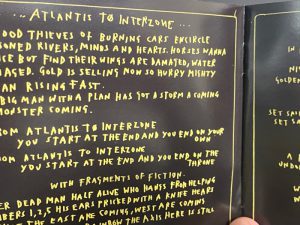 ...ATLANTIS TØ INTERZONE...
OOD THIEVES OF BURNING CARS ENCIRCLE
SONED RIVERS, MINDS AND HEARTS. HORSES WANNA
CE BUT FIND THEIR WINGS ARE DAMATED, WATER
AGED. GOLD IS SELLING NOW SO HURRY MIGHTY
AN RISING FAST.
BIG MAN WITH A PLAN HAS GOT A STORM A COMING
MONSTER COMING.
ROM ATLANTIS TØ INTERZONE
YOU START AT THE END AND YOU END ON YOUR
OWN
OM ATLANTIS TO INTERZONE
YOU START AT THE END AND YOU END ON THE
THRONE
WITH FRAGMENTS OF FICTION.
ER DEAD MAN HALF ALIVE WHO HANGS FROM HELPING
BERS 1,2,5 HIS EARS PRICKED WITH A KNIFE HEARS
THE EAST ARE COMING, WEST ARE COMING
THE AXIS HERE IS STILL
NI
GOLDEN
SET SAI
SET SA
A
UN